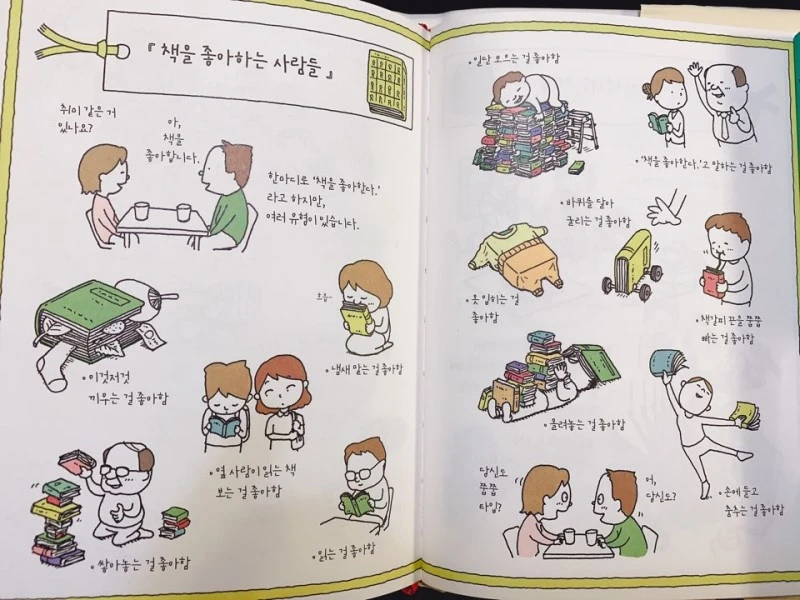 『 책을 좋아하는 사람들 』
취미 같은 거
있나요?
아,
책을
좋아합니다.
한마디로 '책을 좋아한다.'
라고 하지만,
여러 유형이 있습니다.
• 이것저것
끼우는 걸 좋아함
흐음~
• 냄새 맡는 걸 좋아함
• 옆 사람이 읽는 책
보는 걸 좋아함
• 쌓아놓는 걸 좋아함
• 읽는 걸 좋아함
• 일단 모으는 걸 좋아함
• '책을 좋아한다.'고 말하는 걸 좋아함
• 바퀴를 달아
굴리는 걸 좋아함
• 옷 입히는 걸
좋아함
• 책갈피 끈을 쭙쭙
빠는 걸 좋아함
• 올려놓는 걸 좋아함
• 손에 들고
춤추는 걸 좋아함
당신도
쭙쭙
타입?
어,
당신도?